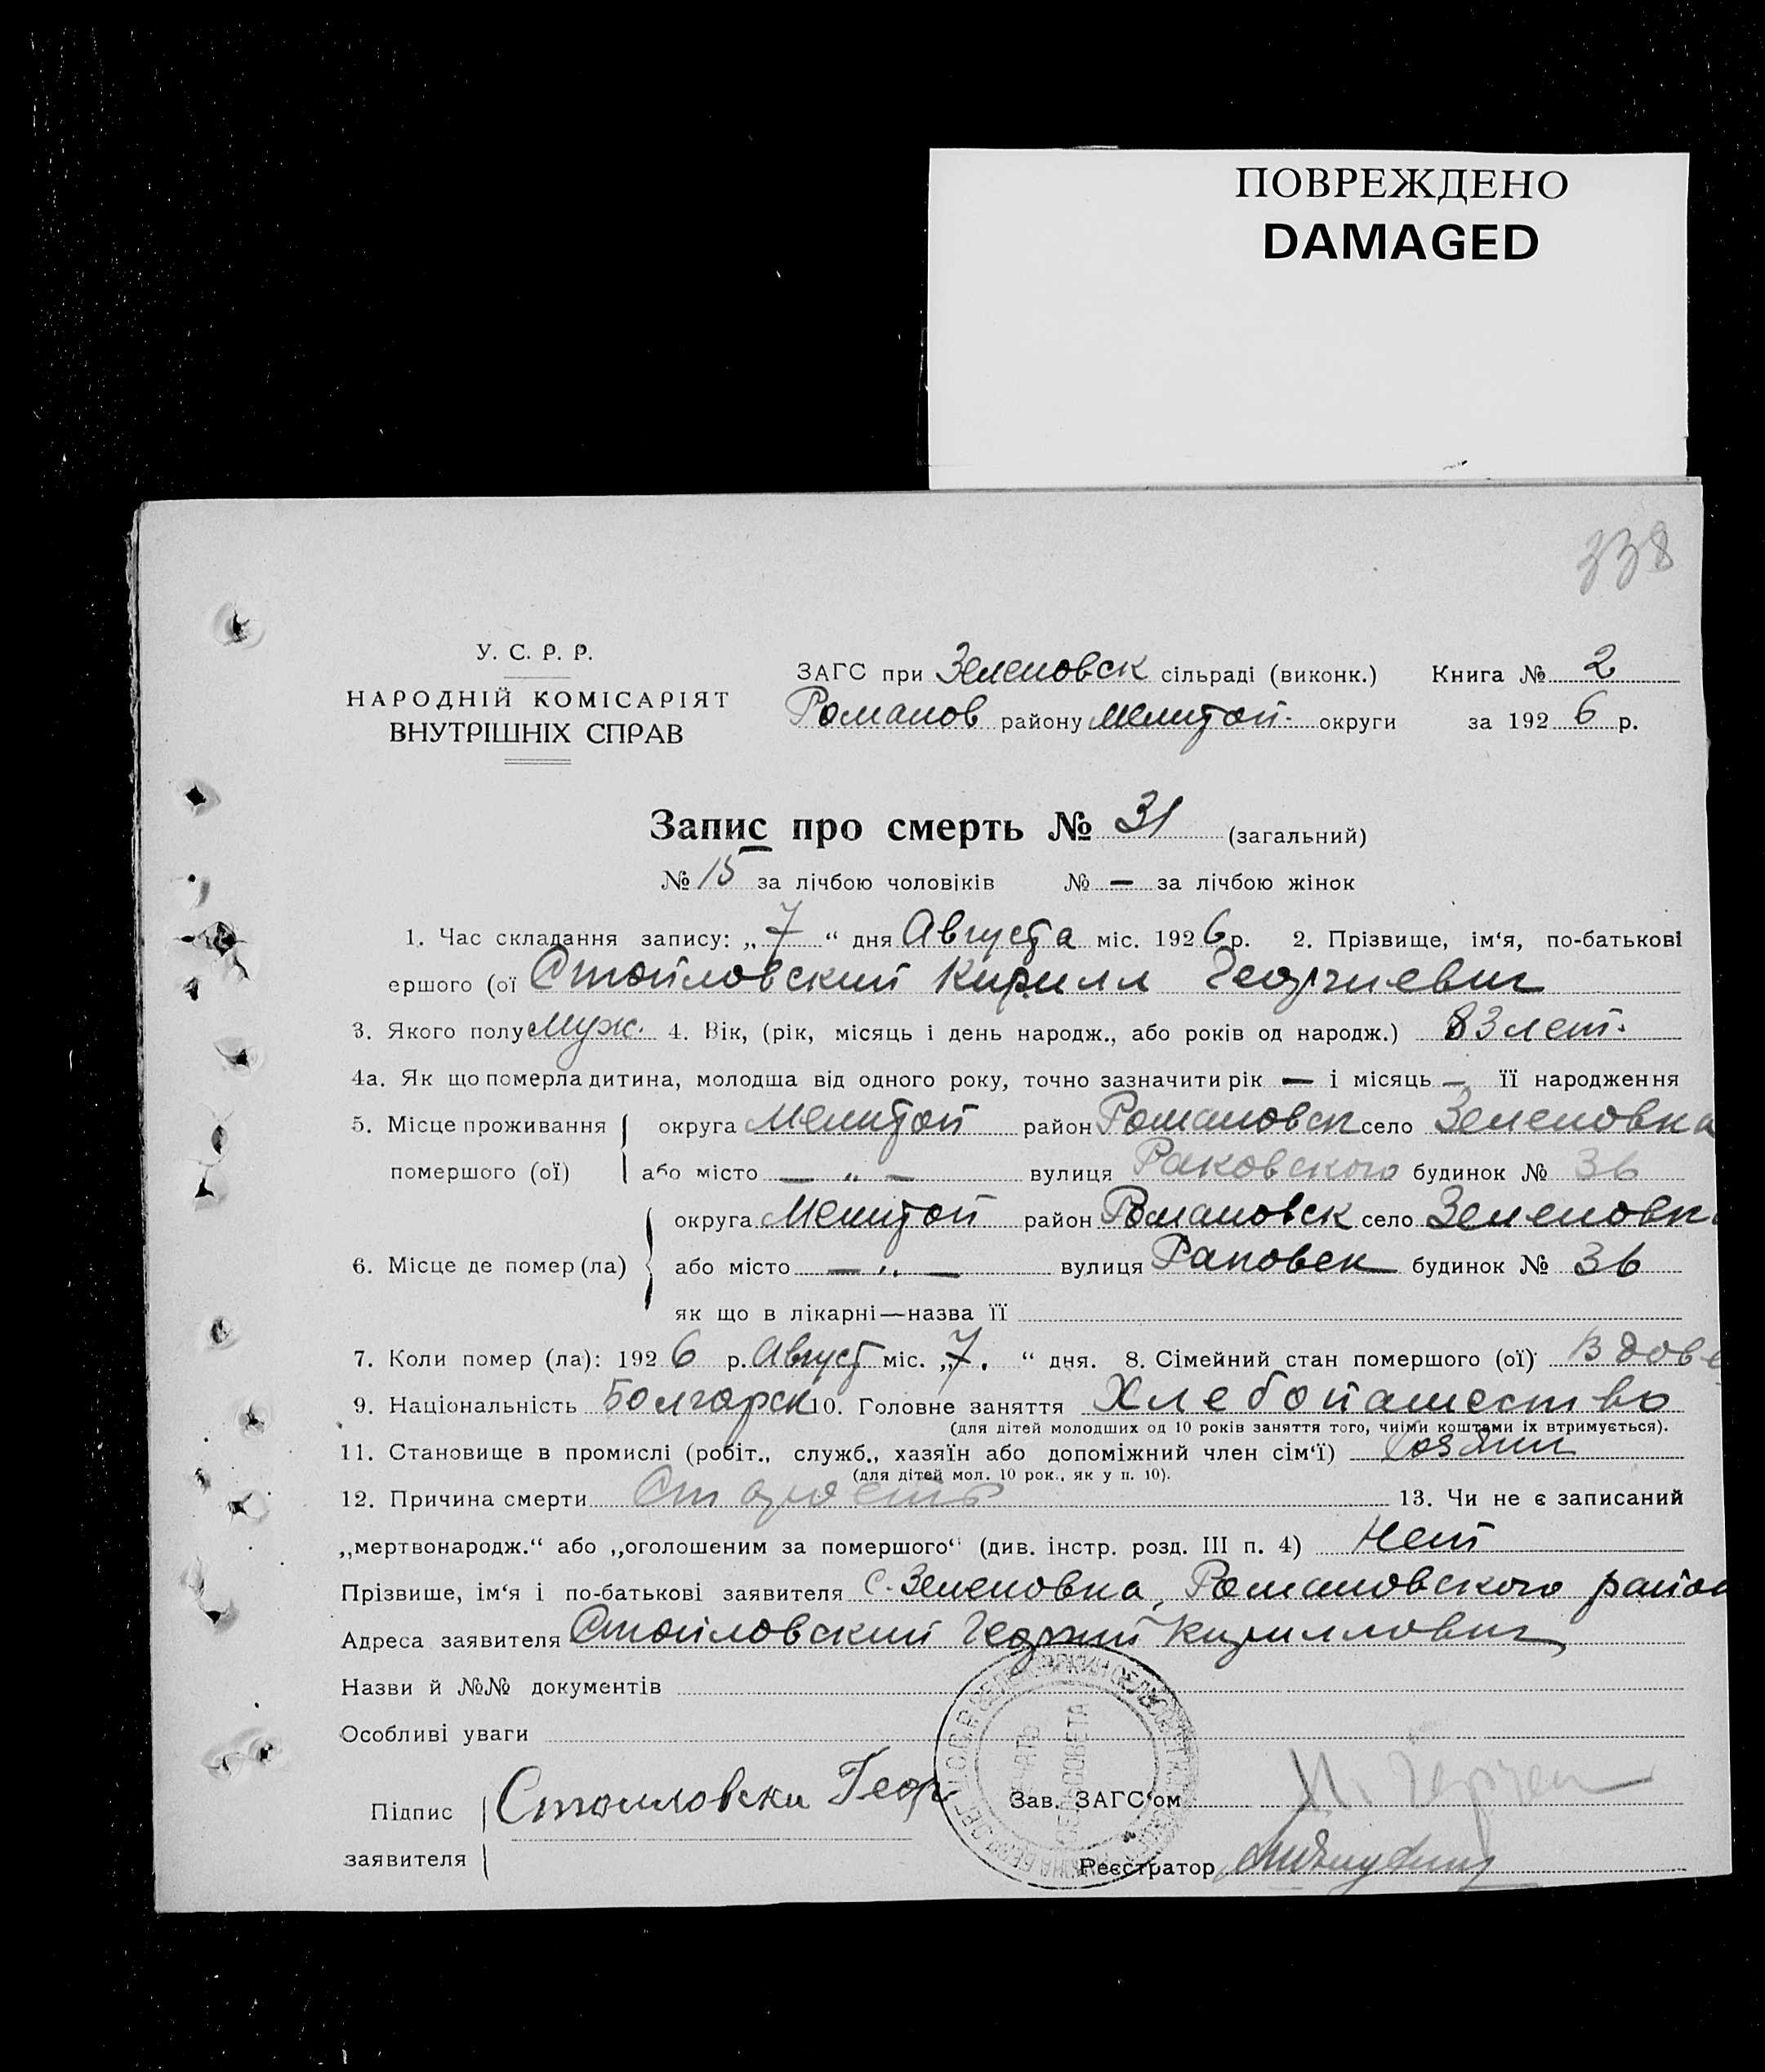 ПОВРЕЖДЕНО
DAMAGED
338
У. С. Р. Р.
НАРОДНІЙ КОМІСАРІЯТ
ВНУТРІШНІХ СПРАВ
ЗАГС при Зеленовск сільраді (виконк.) Книга № 2
Романов району Мелитоп. округи за 1926 р.
Запис про смерть № 31 (загальний)
№ 15 за лічбою чоловіків № — за лічбою жінок
1. Час складання запису: „7“ дня Августа міс. 1926 р. 2. Прізвище, ім‘я, по-батькові
ершого (ої Стойловский Кирилл Георгиевич
3. Якого полу Муж. 4. Вік, (рік, місяць і день народж., або років од народж.) 83 лет.
4а. Як що померла дитина, молодша від одного року, точно зазначити рік — і місяць — її народження
5. Місце проживання округа Мелитоп район Романовск село Зеленовка
помершого (ої) або місто — „ — вулиця Раковского будинок № 36
округа Мелитоп район Романовск село Зеленовк
6. Місце де помер (ла) або місто — „ — вулиця Раковск будинок № 36
як що в лікарні—назва її
7. Коли помер (ла): 1926 р. Август міс. „7.“ дня. 8. Сімейний стан помершого (ої) Вдове
9. Національність Болгарск 10. Головне заняття Хлебопашество
(для дітей молодших од 10 років заняття того, чиїми коштами їх втримується).
11. Становище в промислі (робіт., служб., хазяїн або допоміжний член сім‘ї) Хозяин
(для дітей мол. 10 рок., як у п. 10).
12. Причина смерти Старость 13. Чи не є записаний
„мертвонародж.“ або „оголошеним за помершого“ (див. інстр. розд. III п. 4) Нет
Прізвище, ім‘я і по-батькові заявителя с. Зеленовка, Романовского район
Адреса заявителя Стойловский Георгий Кириллович
Назви й №№ документів
Особливі уваги
Підпис Стоиловски Геор Зав. ЗАГС‘ом
заявителя Реєстратор